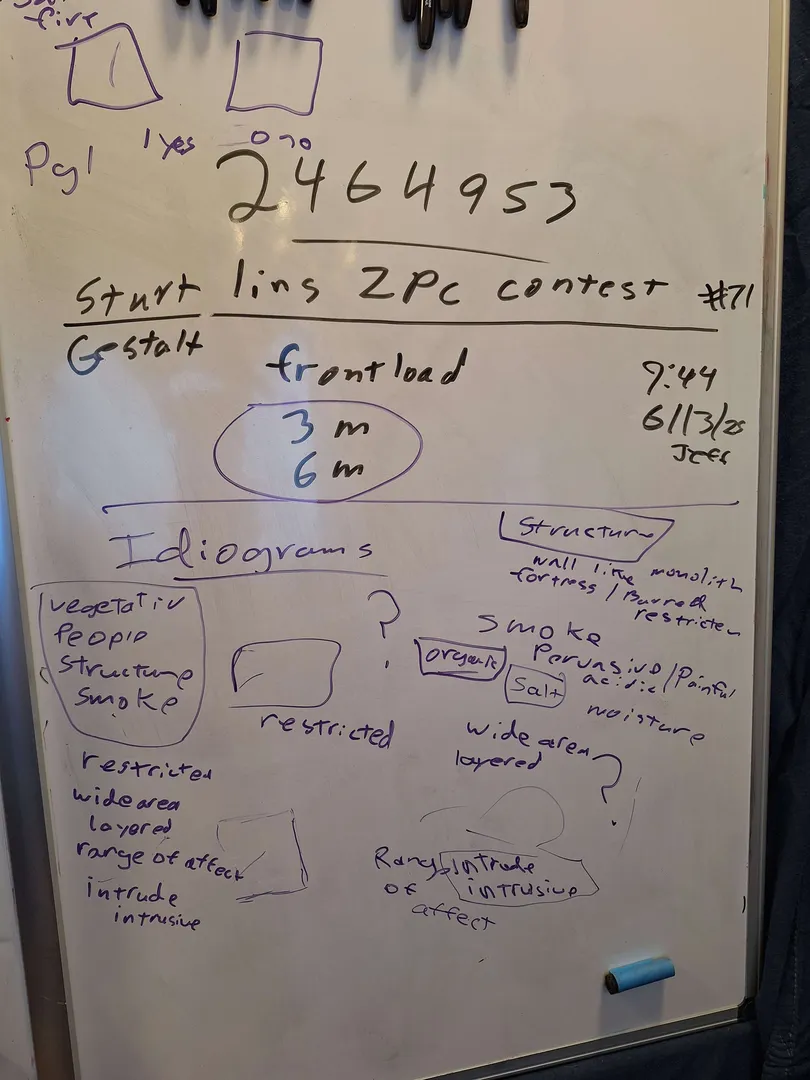 fire
1 yes
0 no
Pg1
2464953
Start lins ZPC contest #71
Gestalt
frontload
9:44
6/13/25
Jeff
3 m
6 m
Idiograms
Structure
wall like monolith
fortress / Barred
restricted
vegetativ
People
Structure
Smoke
?
restricted
Smoke
organic
Pervasive / Painful
acidic
Salt
moisture
wide area
layered
?
restricted
wide area
layered
range of affect
intrude
intrusive
Range
of
affect
intrude
intrusive